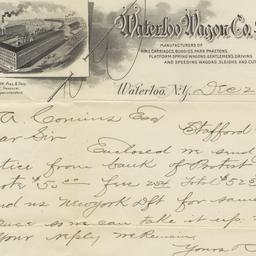 Waterloo Wagon Co.
MANUFACTURERS OF
FINE CARRIAGES, BUGGIES, PARK PHAETONS,
PLATFORM SPRING WAGONS, GENTLEMENS DRIVING
AND SPEEDING WAGONS, SLEIGHS AND CUT
Waterloo, N.Y. Dec 2
A. Comins Esq
Stafford
ar Sir
Enclosed we send
tice from bank of Protest
ote $50.00 fees 2.54 Total $52.5
nd us New York Dft for same
once so we can take it up
Your reply we Remain
Yours